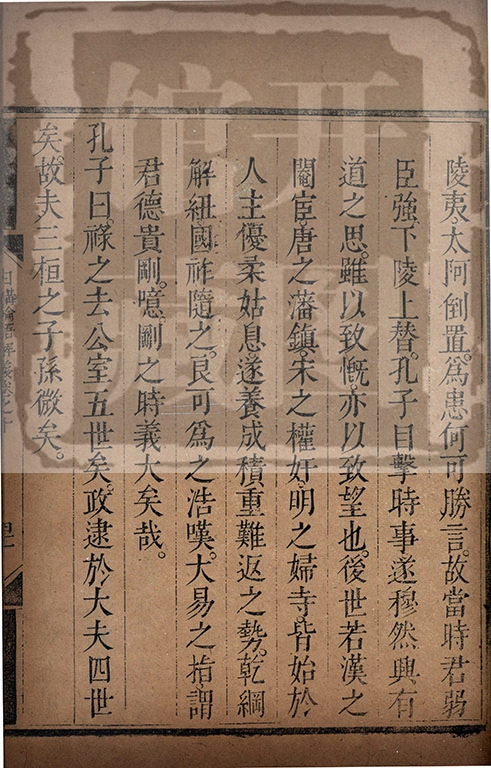 陵夷太阿倒置為患何可勝言故當時君弱
臣強下陵上替孔子目擊時事遂穆然興有
道之思雖以致慨亦以致望也後世若漢之
閹宦唐之藩鎮宋之權奸明之婦寺皆始於
人主優柔姑息遂養成積重難返之勢乾綱
解紐國祚隨之良可為之浩嘆大易之指謂
君德貴剛噫剛之時義大矣哉
孔子曰祿之去公室五世矣政逮於大夫四世
矣故夫三桓之子孫微矣